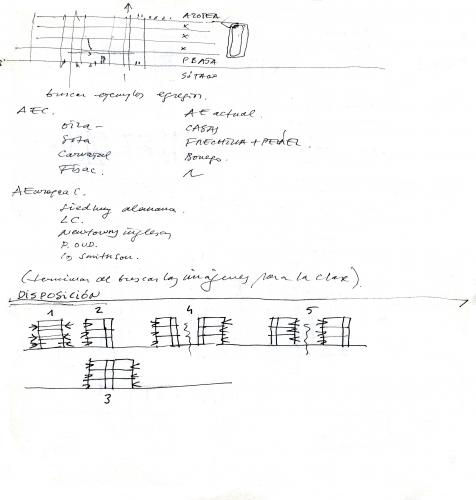 AZOTEA
x
x
x
P BAJA
SÓTANO
buscar ejemplos
AEC. AE actual.
OIZA - CASAS
SOTA FRECHILLA + PELÁEZ.
Carvajal
Fisac.
AEuropea C.
Siedlung alemana.
LC.
Newtowns inglesas
P. OUD.
los Smithson.
(terminar de buscar las imágenes para la clase).
DISPOSICIÓN
1 2 4 5
3